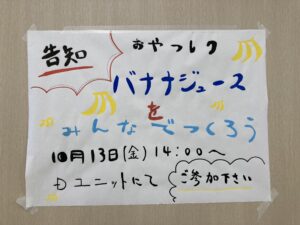 告知
おやつレク
バナナジュース
を
みんなでつくろう
10月13日(金) 14:00〜
Dユニットにて
ご参加下さい